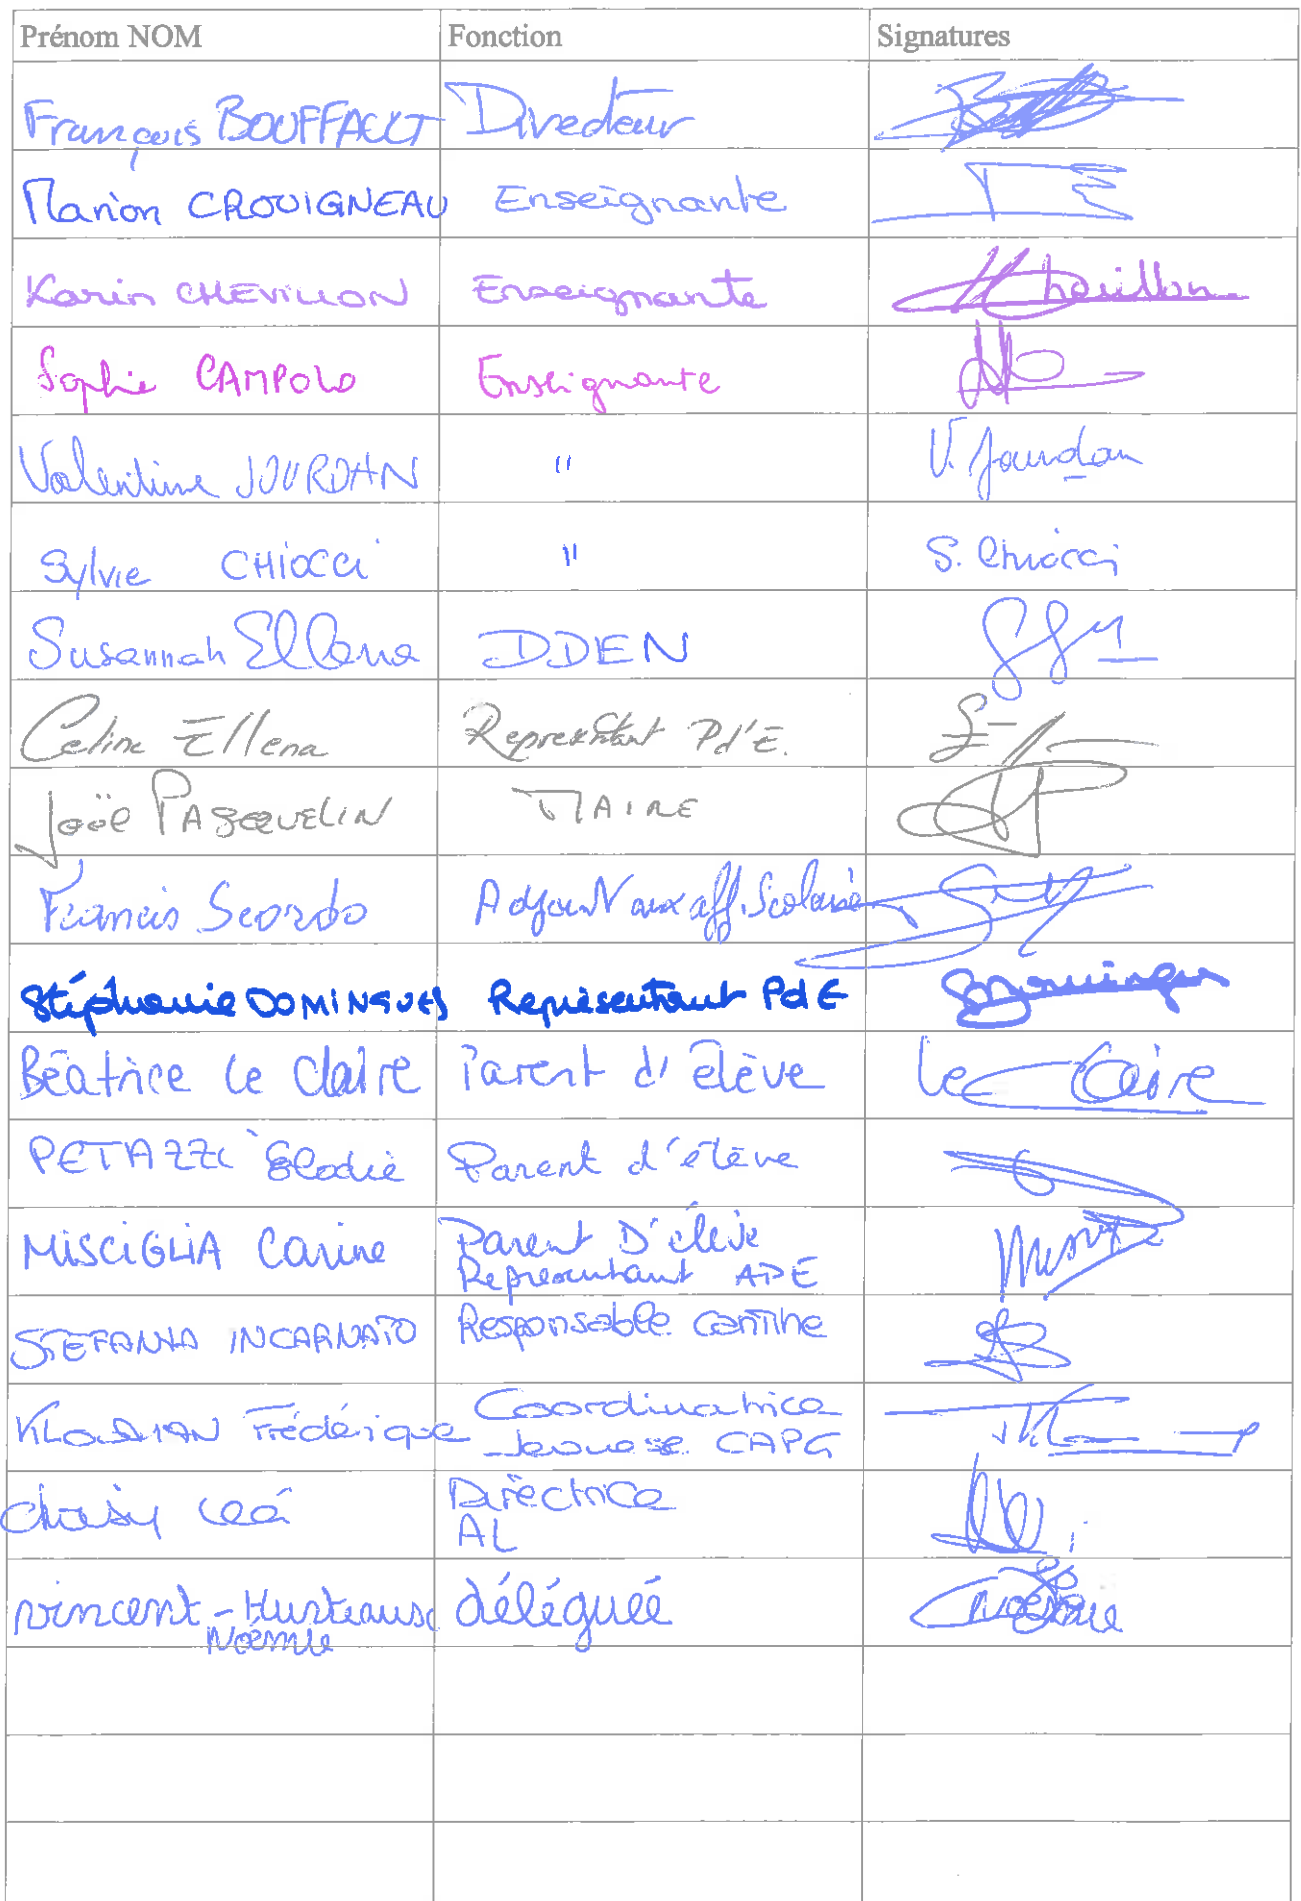 Prénom NOM Fonction Signatures
François BOUFFAULT Directeur
Marion CROUIGNEAU Enseignante
Karin CHEVILLON Enseignante Chevillon
Sophie CAMPOLO Enseignante
Valentine JOURDAN " V. Jourdan
Sylvie CHIOCCI " S. Chiocci
Susannah Ellena DDEN
Celine Ellena Représentant Pd'E.
Joël PASQUELIN MAIRE
Francis Scordo Adjoint aux aff. Scolaires
Stéphanie DOMINGUES Représentant PdE Domingues
Béatrice le Claire Parent d'élève Le Claire
PETAZZI Elodie Parent d'élève
MISCIGLIA Carine Parent D'élève
Représentant APE
STEFANIA INCARNATO Responsable cantine
Frédérique Coordinatrice
Jeunesse CAPG
Léa Directrice
AL
Vincent - 
Noémie déléguée